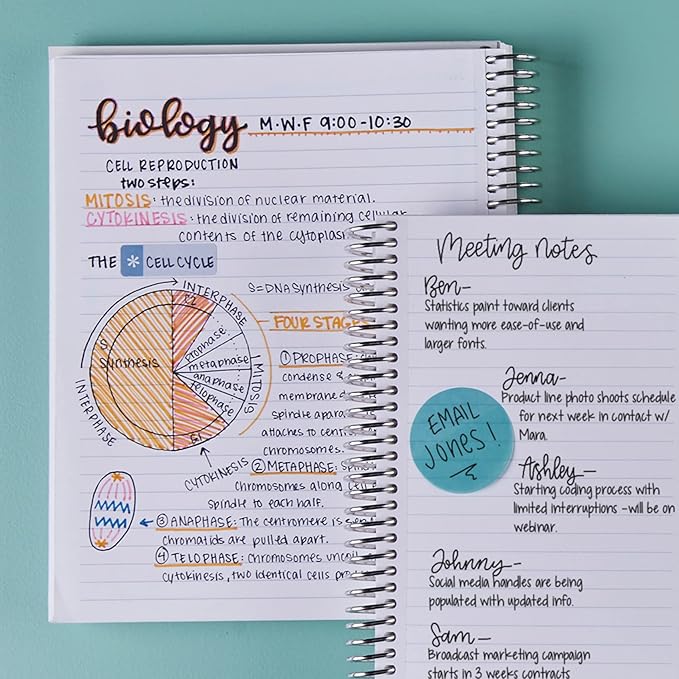 biology M.W.F 9:00-10:30
CELL REPRODUCTION
two steps:
MITOSIS: the division of nuclear material.
CYTOKINESIS: the division of remaining cellular
contents of the cytoplas
THE * CELL CYCLE
S=DNA Synthesis
INTERPHASE
G2
FOUR STAGES
S
Synthesis
prophase
metaphase
anaphase
telophase
MITOSIS
INTERPHASE
G1
CYTOKINESIS
① PROPHASE:
condense
membrane
spindle appara
attaches to cent
chromosomes.
② METAPHASE: Spin
chromosomes along
spindle to each half.
③ ANAPHASE: The centromere is
chromatids are pulled apart.
④ TELOPHASE: chromosomes uncoil
cytokinesis, two identical cells pro
Meeting notes
Ben-
Statistics paint toward clients
wanting more ease-of-use and
larger fonts.
Jenna-
Product line photo shoots schedule
for next week in contact w/
Mara.
EMAIL
JONES!
Ashley-
Starting coding process with
limited interruptions -will be on
webinar.
Johnny-
Social media handles are being
populated with updated info.
Sam-
Broadcast marketing campaign
starts in 3 weeks contracts